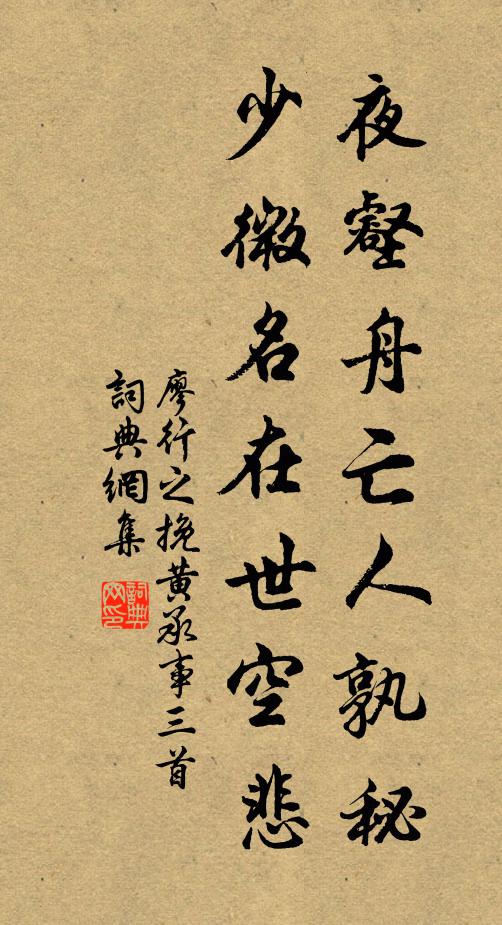 夜壑舟亡人孰秘
少微名在世空悲
廖行之挽黄承事三首
詞典網集
詞典网印